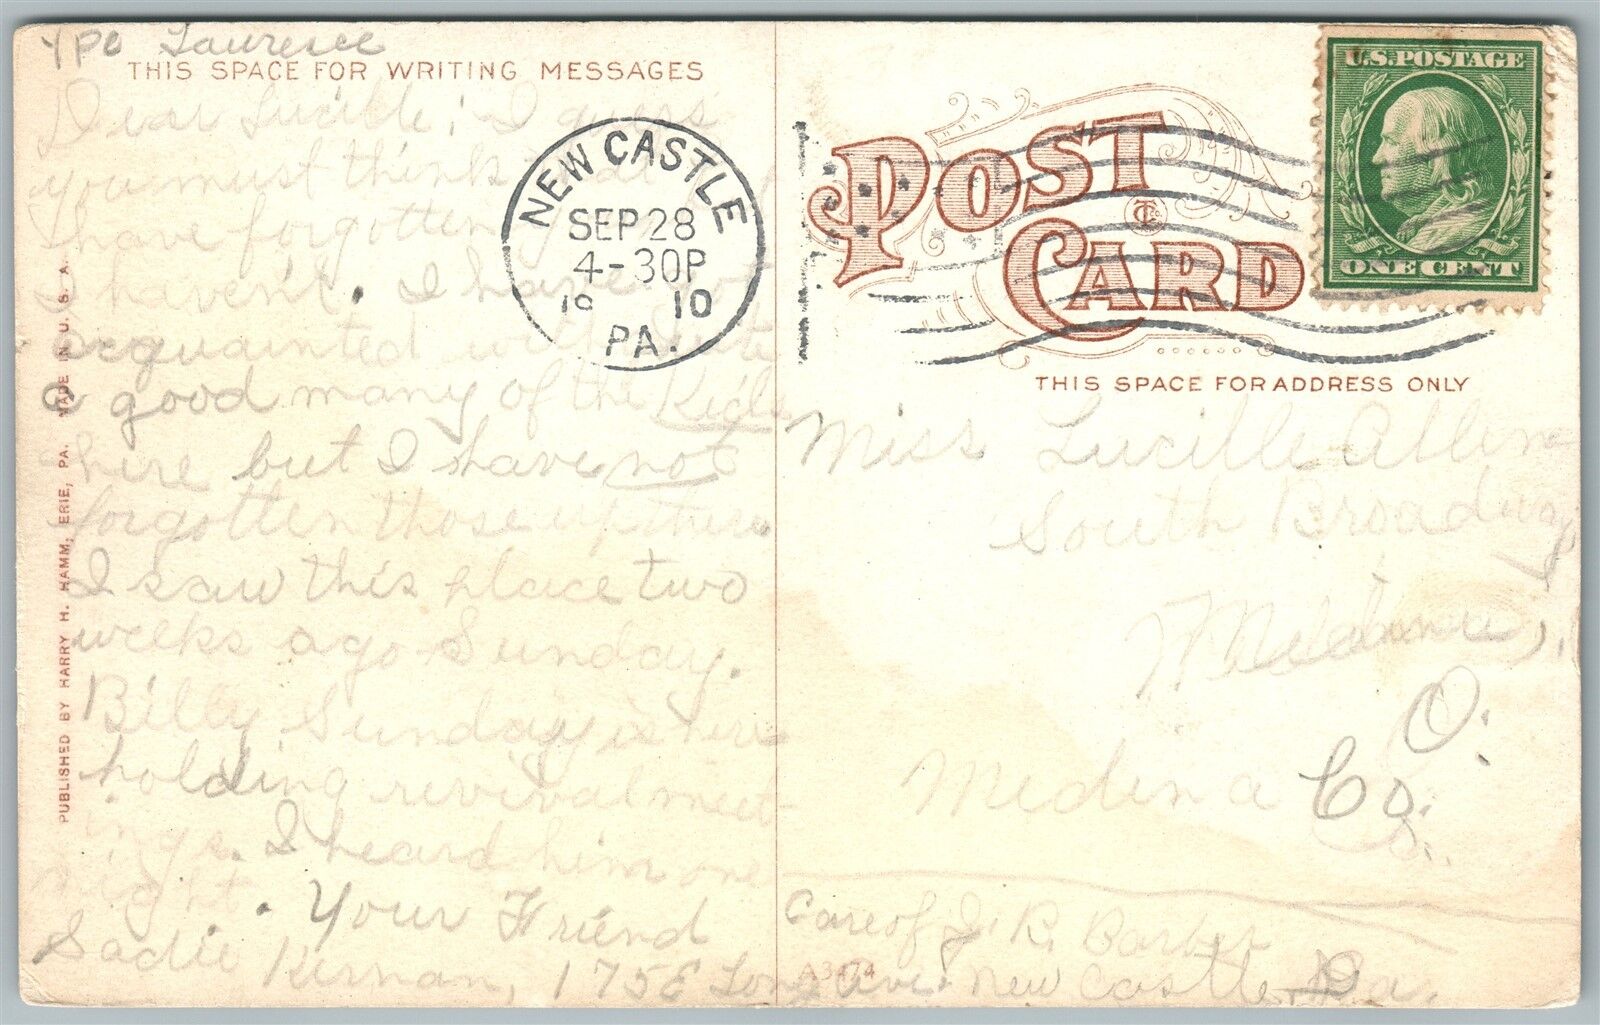 THIS SPACE FOR WRITING MESSAGES
Dear Lucille; I guess
you must think
I have forgotten
I haven't. I have
acquainted with quite
a good many of the Kids
here but I have not
forgotten those up there
I saw this place two
weeks ago Sunday.
Billy Sunday is here
holding revival meet-
ings. I heard him one
night
. Your Friend
Sadie Kernan, 175 E Long Ave. New Castle Pa.
Care of J. R. Barber
NEW CASTLE
SEP 28
4-30P
19 10
PA.
PUBLISHED BY HARRY H. HAMM, ERIE, PA. MADE IN U. S. A.
POST
CARD
THIS SPACE FOR ADDRESS ONLY
U.S. POSTAGE
ONE CENT
Miss Lucille Allen
South Broadway
Medina,
O.
Medina Co.
A3474